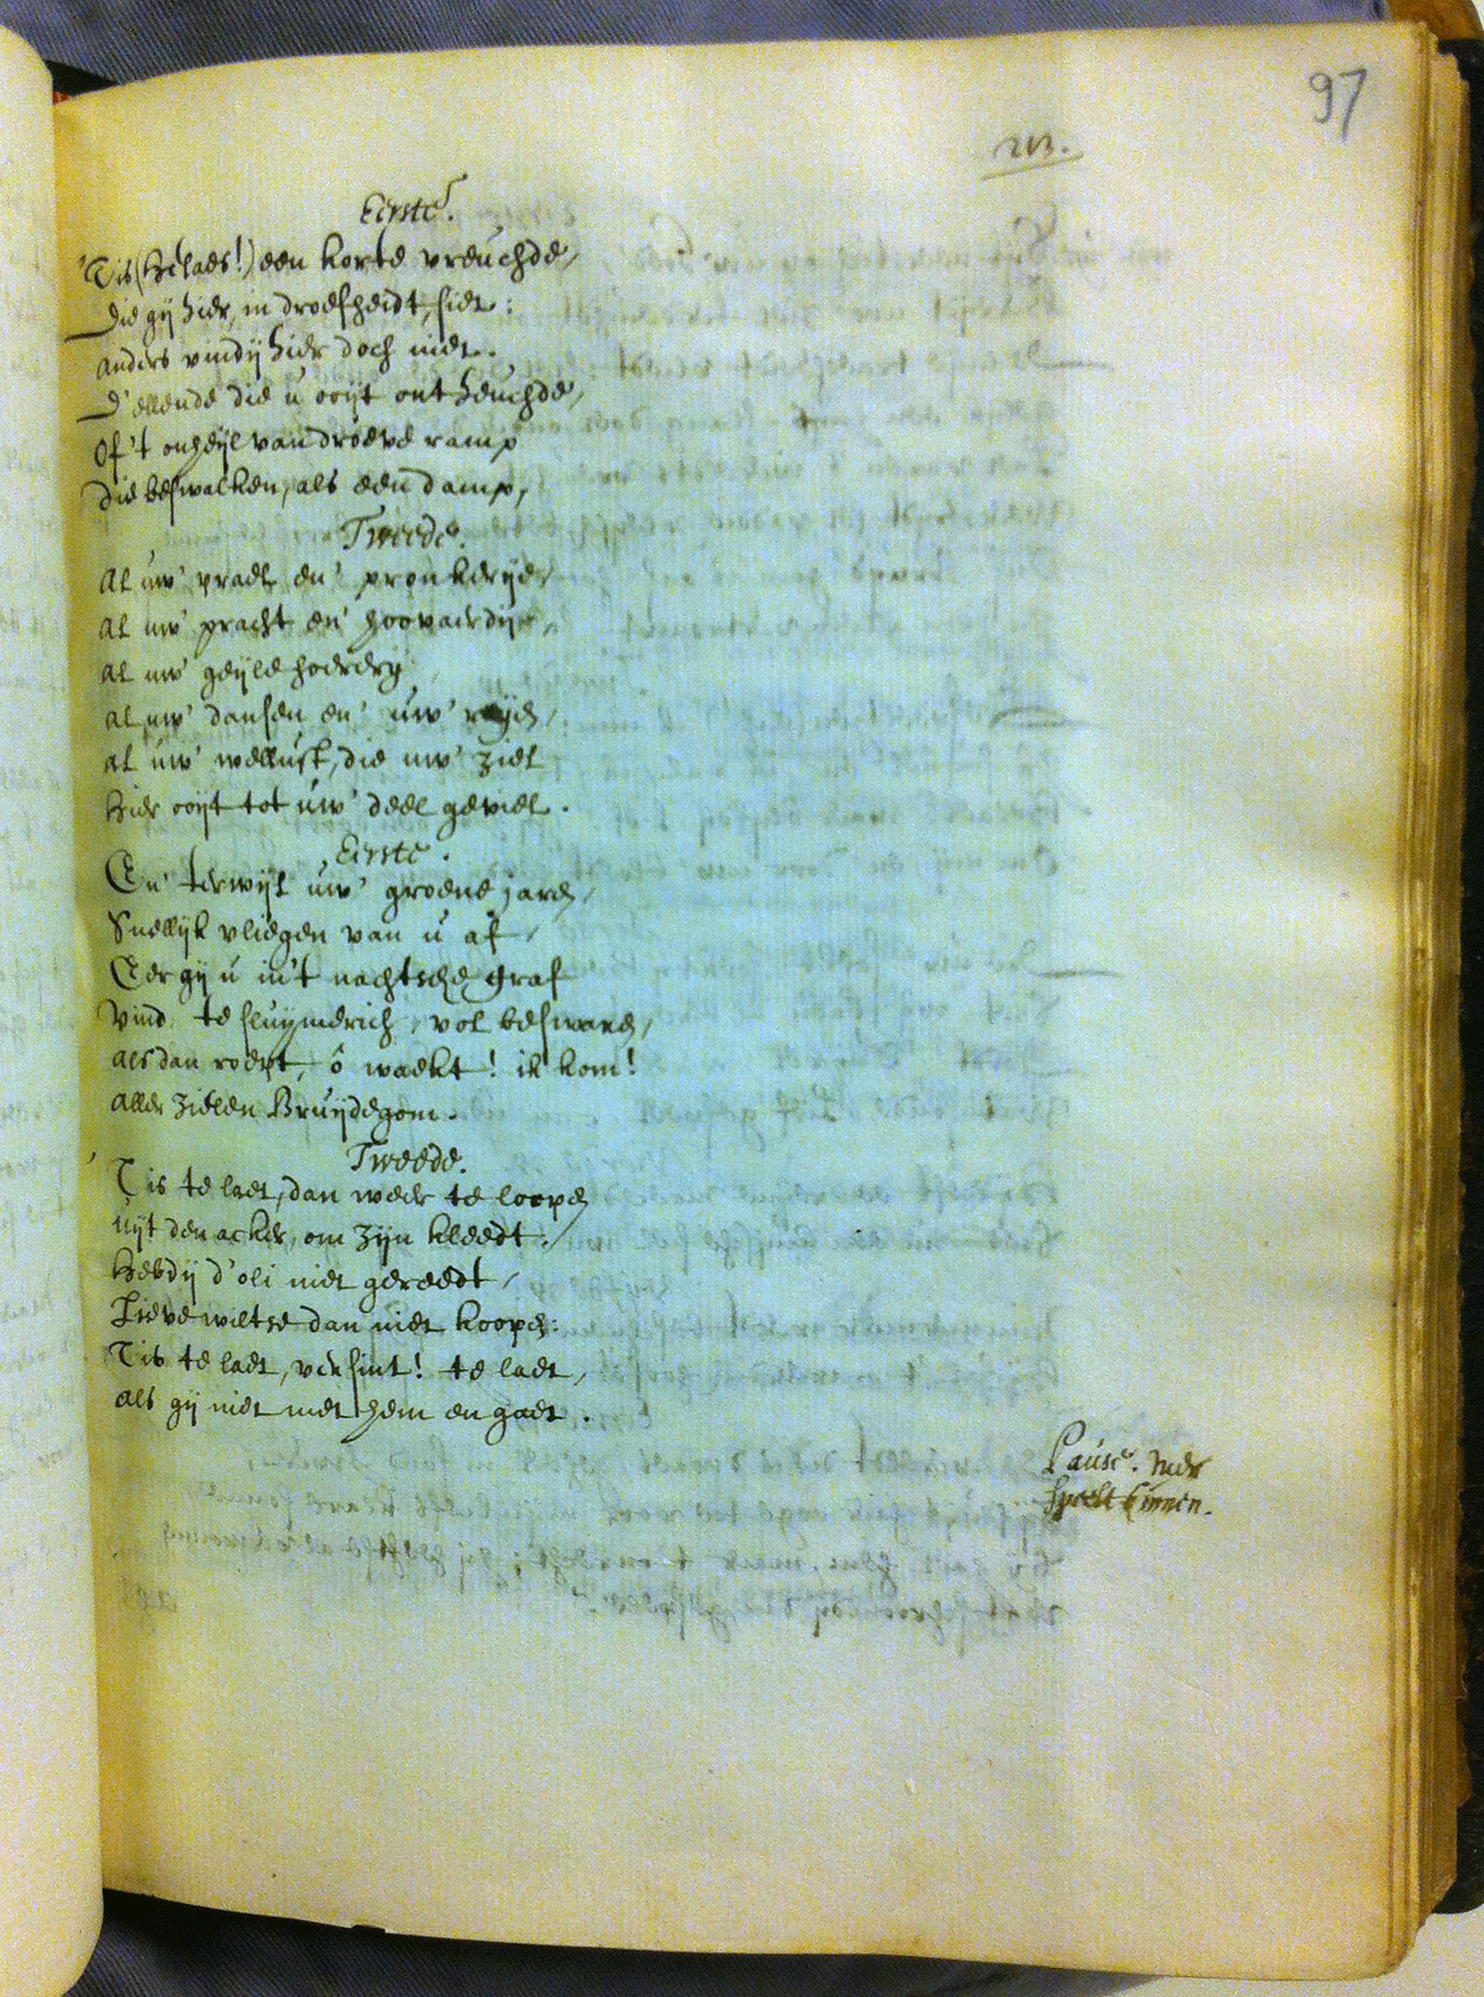 97
213.
Eerste.
'Tis (Helaes!) een korte vreuchde,
Die gij hier, in droefheidt, siet:
anders vindij hier doch niet.
D'ellende die u ooijt ontheuchde,
Of 't onheijl van droeve ramp
Die beswalken, als een damp,
Tweede.
Al uw' prael en' pronkerije,
Al uw' pracht en' hoovaerdije,
Al uw' geijle hoerdrij
al uw' dansen en' uw' reijen,
al uw' wellust, die uw' ziel
Hier ooijt tot uw' deel geviel.
Eerste.
En' terwijl uw' groene jaren,
Snellijk vliegen van u af,
Eer gij u in't nachtsche graf
Vind te sluijmerich, vol beswaren,
als dan roept, ô waekt! ik kom!
aller zielen Bruijdegom.
Tweede.
'Tis te laet, dan weer te loopen
uijt den acker, om zijn kleedt:
Hebdij d'oli niet gereedt,
Lieve wiltse dan niet koopen:
Tis te laet, versint! te laet,
als gij niet met hem en gaet.
Pause. Men
speelt binnen.